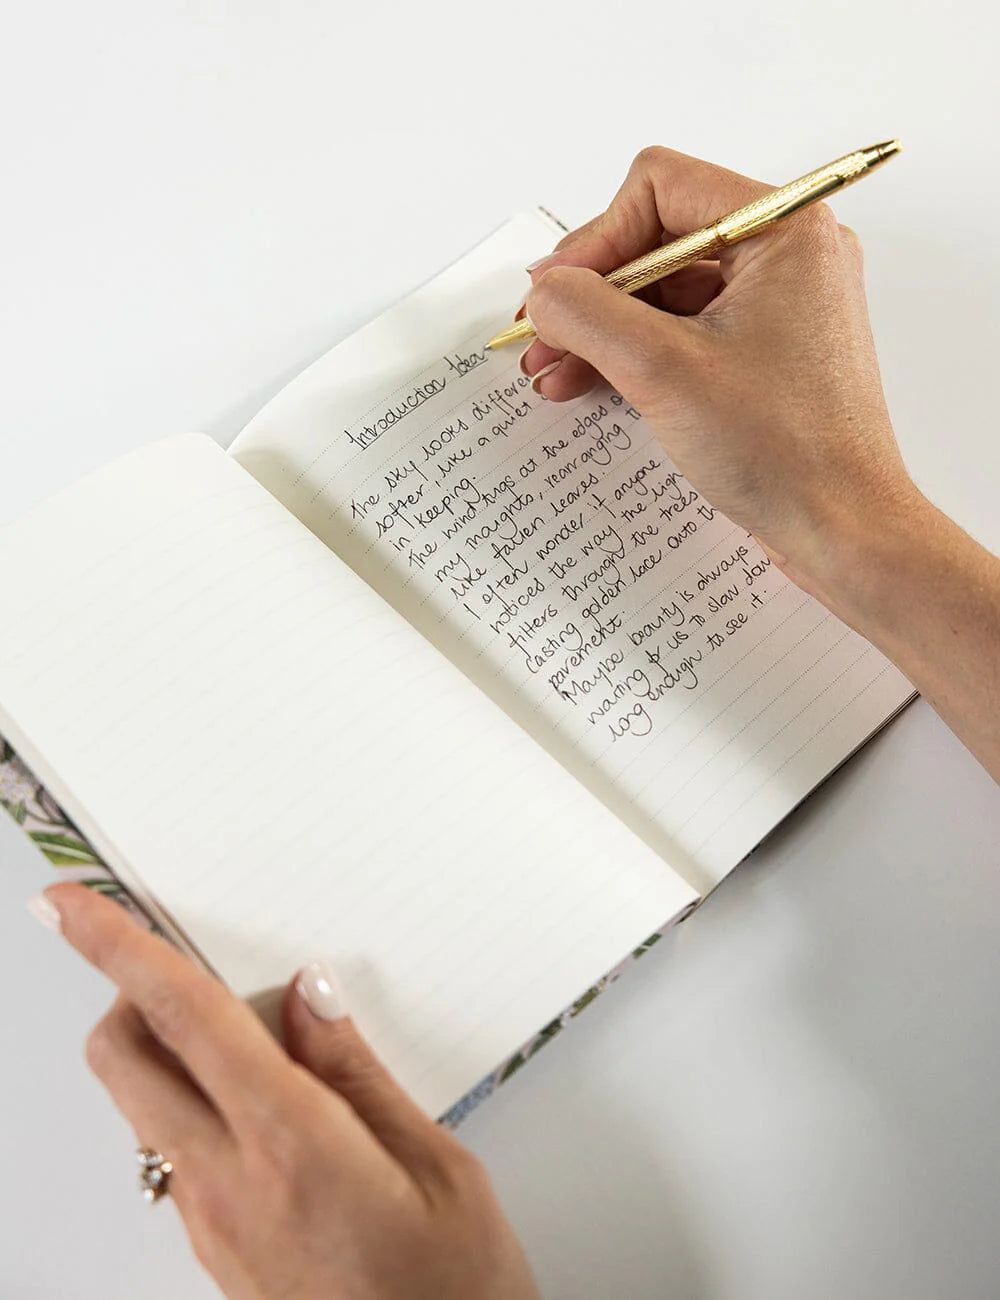 Introduction Idea
The sky looks differen
softer, like a quiet
in keeping.
The wind tugs at the edges o
my thoughts, rearranging th
like fallen leaves.
I often wonder if anyone
notices the way the ligh
filters through the trees
casting golden lace onto th
pavement.
Maybe beauty is always
waiting for us to slow dow
long enough to see it.